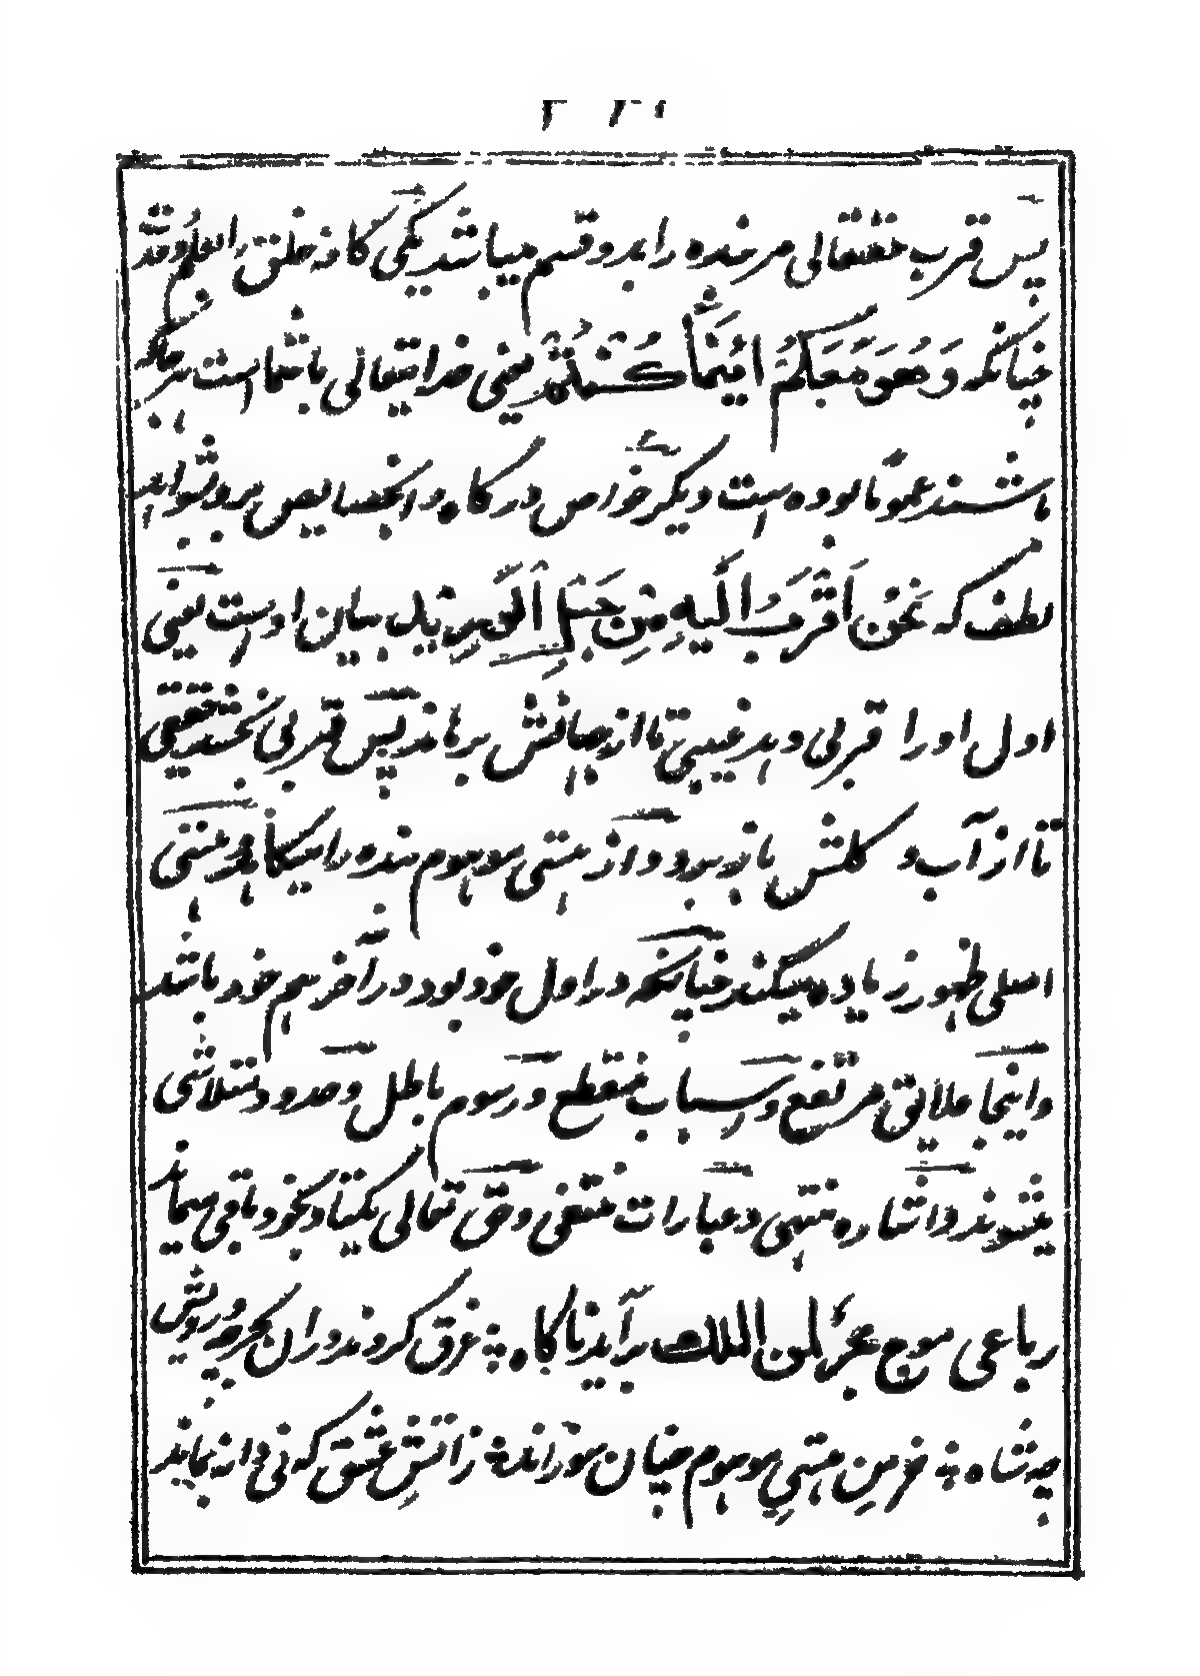 پس قرب حقتعالی مر بنده را بدو قسم میباشد یکی کافه خلق را بعلم و قدرت
چنانکه وَهُوَ مَعَكُمْ اَيْنَمَا كُنْتُمْ یعنی خدایتعالی باشما است هر جا که
باشند عموماً بوده است دیگر خواص درگاه را بخصایص بر و شواهد
لطف که نَحْنُ اَقْرَبُ اِلَيْهِ مِنْ حَبْلِ الْوَرِيدِ بیان اوست یعنی
اول او را قربی دهد غیبی تا از جهانش برهاند پس قربی بخشد حقیقی
تا از آب و گلش باز برد و از هستی موهوم بنده را میکاهد و هستی
اصلی ظهور زیاده میکند چنانکه در اول خود بود در آخر هم خود باشد
و اینجا علائق مرتفع و اسباب منقطع و رسوم باطل و حدود متلاشی
میشوند و اشاره منتهی و عبارات منتفی و حق تعالی یکتا و بخود باقی میماند
رباعی موج بحر لمن الملک برآید ناگاه * غرق گردند در ان بحر چه درویش
چه شاه * خرمن هستی موهوم چنان سوزاند * ز اتش عشق که نی دانه بماند